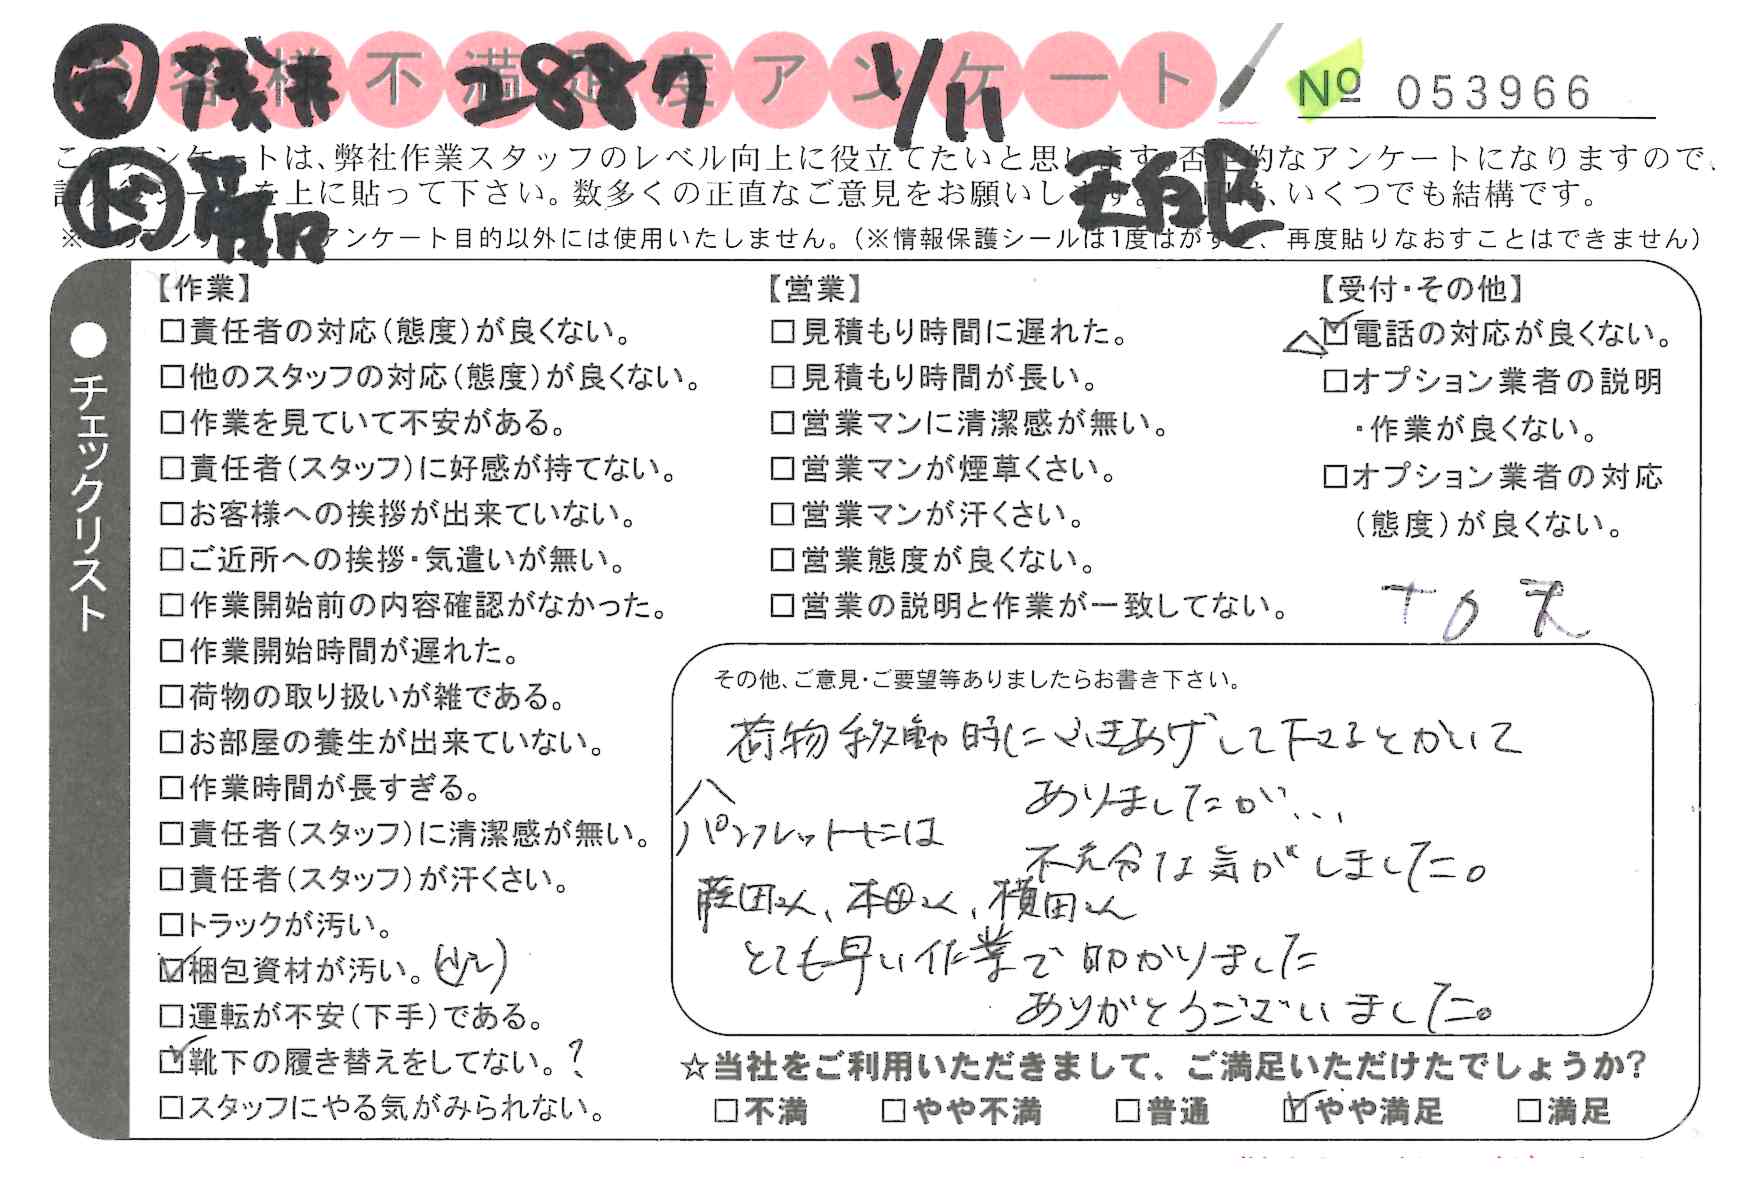 お客様不満足度アンケート
2887
1/11
№ 053966
このアンケートは、弊社作業スタッフのレベル向上に役立てたいと思います。否定的なアンケートになりますので、
を上に貼って下さい。数多くの正直なご意見をお願いします。 、いくつでも結構です。
天白区
アンケート目的以外には使用いたしません。(※情報保護シールは1度はがすと、再度貼りなおすことはできません)
●チェックリスト
【作業】
□責任者の対応(態度)が良くない。
□他のスタッフの対応(態度)が良くない。
□作業を見ていて不安がある。
□責任者(スタッフ)に好感が持てない。
□お客様への挨拶が出来ていない。
□ご近所への挨拶・気遣いが無い。
□作業開始前の内容確認がなかった。
□作業開始時間が遅れた。
□荷物の取り扱いが雑である。
□お部屋の養生が出来ていない。
□作業時間が長すぎる。
□責任者(スタッフ)に清潔感が無い。
□責任者(スタッフ)が汗くさい。
□トラックが汚い。
☑梱包資材が汚い。(少し)
□運転が不安(下手)である。
☑靴下の履き替えをしてない。?
□スタッフにやる気がみられない。
【営業】
□見積もり時間に遅れた。
□見積もり時間が長い。
□営業マンに清潔感が無い。
□営業マンが煙草くさい。
□営業マンが汗くさい。
□営業態度が良くない。
□営業の説明と作業が一致してない。
【受付・その他】
△☑電話の対応が良くない。
□オプション業者の説明
・作業が良くない。
□オプション業者の対応
(態度)が良くない。
その他、ご意見・ご要望等ありましたらお書き下さい。
荷物移動時にふきあげして下さるとかいて
ありましたが...
パンフレットには
不充分な気がしました。
藤田さん、本田さん、横田さん
とても早い作業で助かりました
ありがとうございました。
☆当社をご利用いただきまして、ご満足いただけたでしょうか?
□不満 □やや不満 □普通 ☑やや満足 □満足